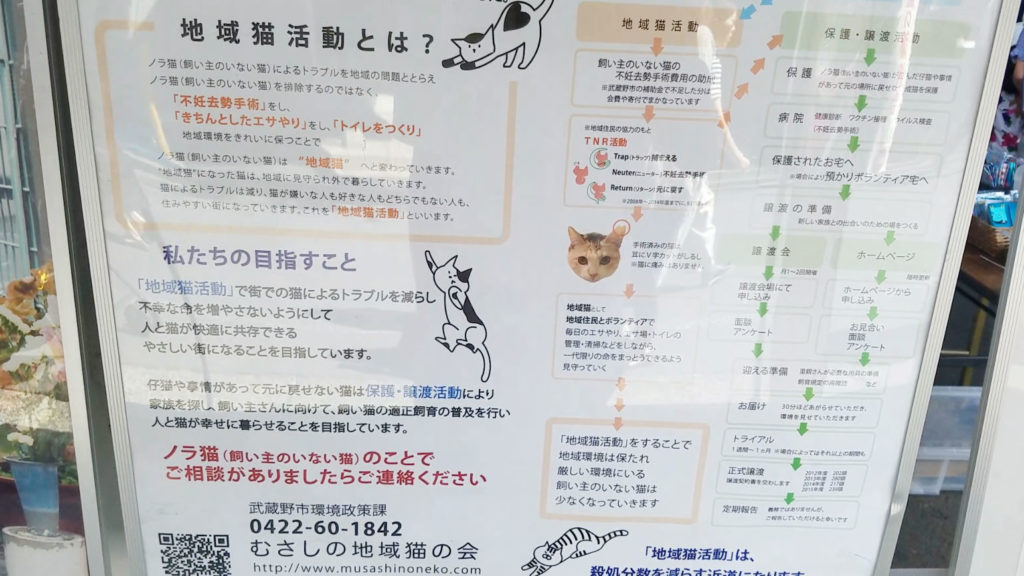 地域猫活動とは?
ノラ猫(飼い主のいない猫)によるトラブルを地域の問題ととらえ
ノラ猫(飼い主のいない猫)を排除するのではなく、
「不妊去勢手術」をし、
「きちんとしたエサやり」をし、「トイレをつくり」
地域環境をきれいに保つことで
ノラ猫(飼い主のいない猫)は "地域猫" へと変わっていきます。
"地域猫"になった猫は、地域に見守られ外で暮らしていきます。
猫によるトラブルは減り、猫が嫌いな人も好きな人もどちらでもない人も、
住みやすい街になっていきます。これを「地域猫活動」といいます。
私たちの目指すこと
「地域猫活動」で街での猫によるトラブルを減らし
不幸な命を増やさないようにして
人と猫が快適に共存できる
やさしい街になることを目指しています。
仔猫や事情があって元に戻せない猫は保護・譲渡活動により
家族を探し、飼い主さんに向けて、飼い猫の適正飼育の普及を行い
人と猫が幸せに暮らせることを目指しています。
ノラ猫(飼い主のいない猫)のことで
ご相談がありましたらご連絡ください
武蔵野市環境政策課
0422-60-1842
むさしの地域猫の会
http://www.musashinoneko.com
地域猫活動
飼い主のいない猫の
不妊去勢手術費用の助成
※武蔵野市の補助金で不足した分は
会費や寄付でまかなっています
※地域住民の協力のもと
TNR活動
Trap(トラップ)捕まえる
Neuter(ニューター)不妊去勢手術
Return(リターン)元に戻す
手術済みの猫は
耳にV字カットがしるし
※猫に痛みはありません
地域猫として
地域住民とボランティアで
毎日のエサやり、エサ場・トイレの
管理・清掃などをしながら、
一代限りの命をまっとうできるよう
見守っていく
「地域猫活動」をすることで
地域環境は保たれ
厳しい環境にいる
飼い主のいない猫は
少なくなっていきます
「地域猫活動」は、
殺処分数を減らす近道になります
保護・譲渡活動
保護
病院 健康診断 ワクチン接種 ウイルス検査
(不妊去勢手術)
保護されたお宅へ
※場合により預かりボランティア宅へ
譲渡の準備
新しい家族との出会いのための場をつくる
譲渡会
月1〜2回開催
譲渡会場にて
申し込み
面談
アンケート
ホームページ
随時更新
ホームページから
申し込み
お見合い
面談
アンケート
迎える準備
など
お届け 30分ほどあがらせていただき、
環境を見せていただきます
トライアル
1週間〜1カ月 ※場合によってはそれ以上の期間も
正式譲渡
譲渡契約書を交わします
定期報告 義務ではありませんが、
ご報告していただけると幸いです